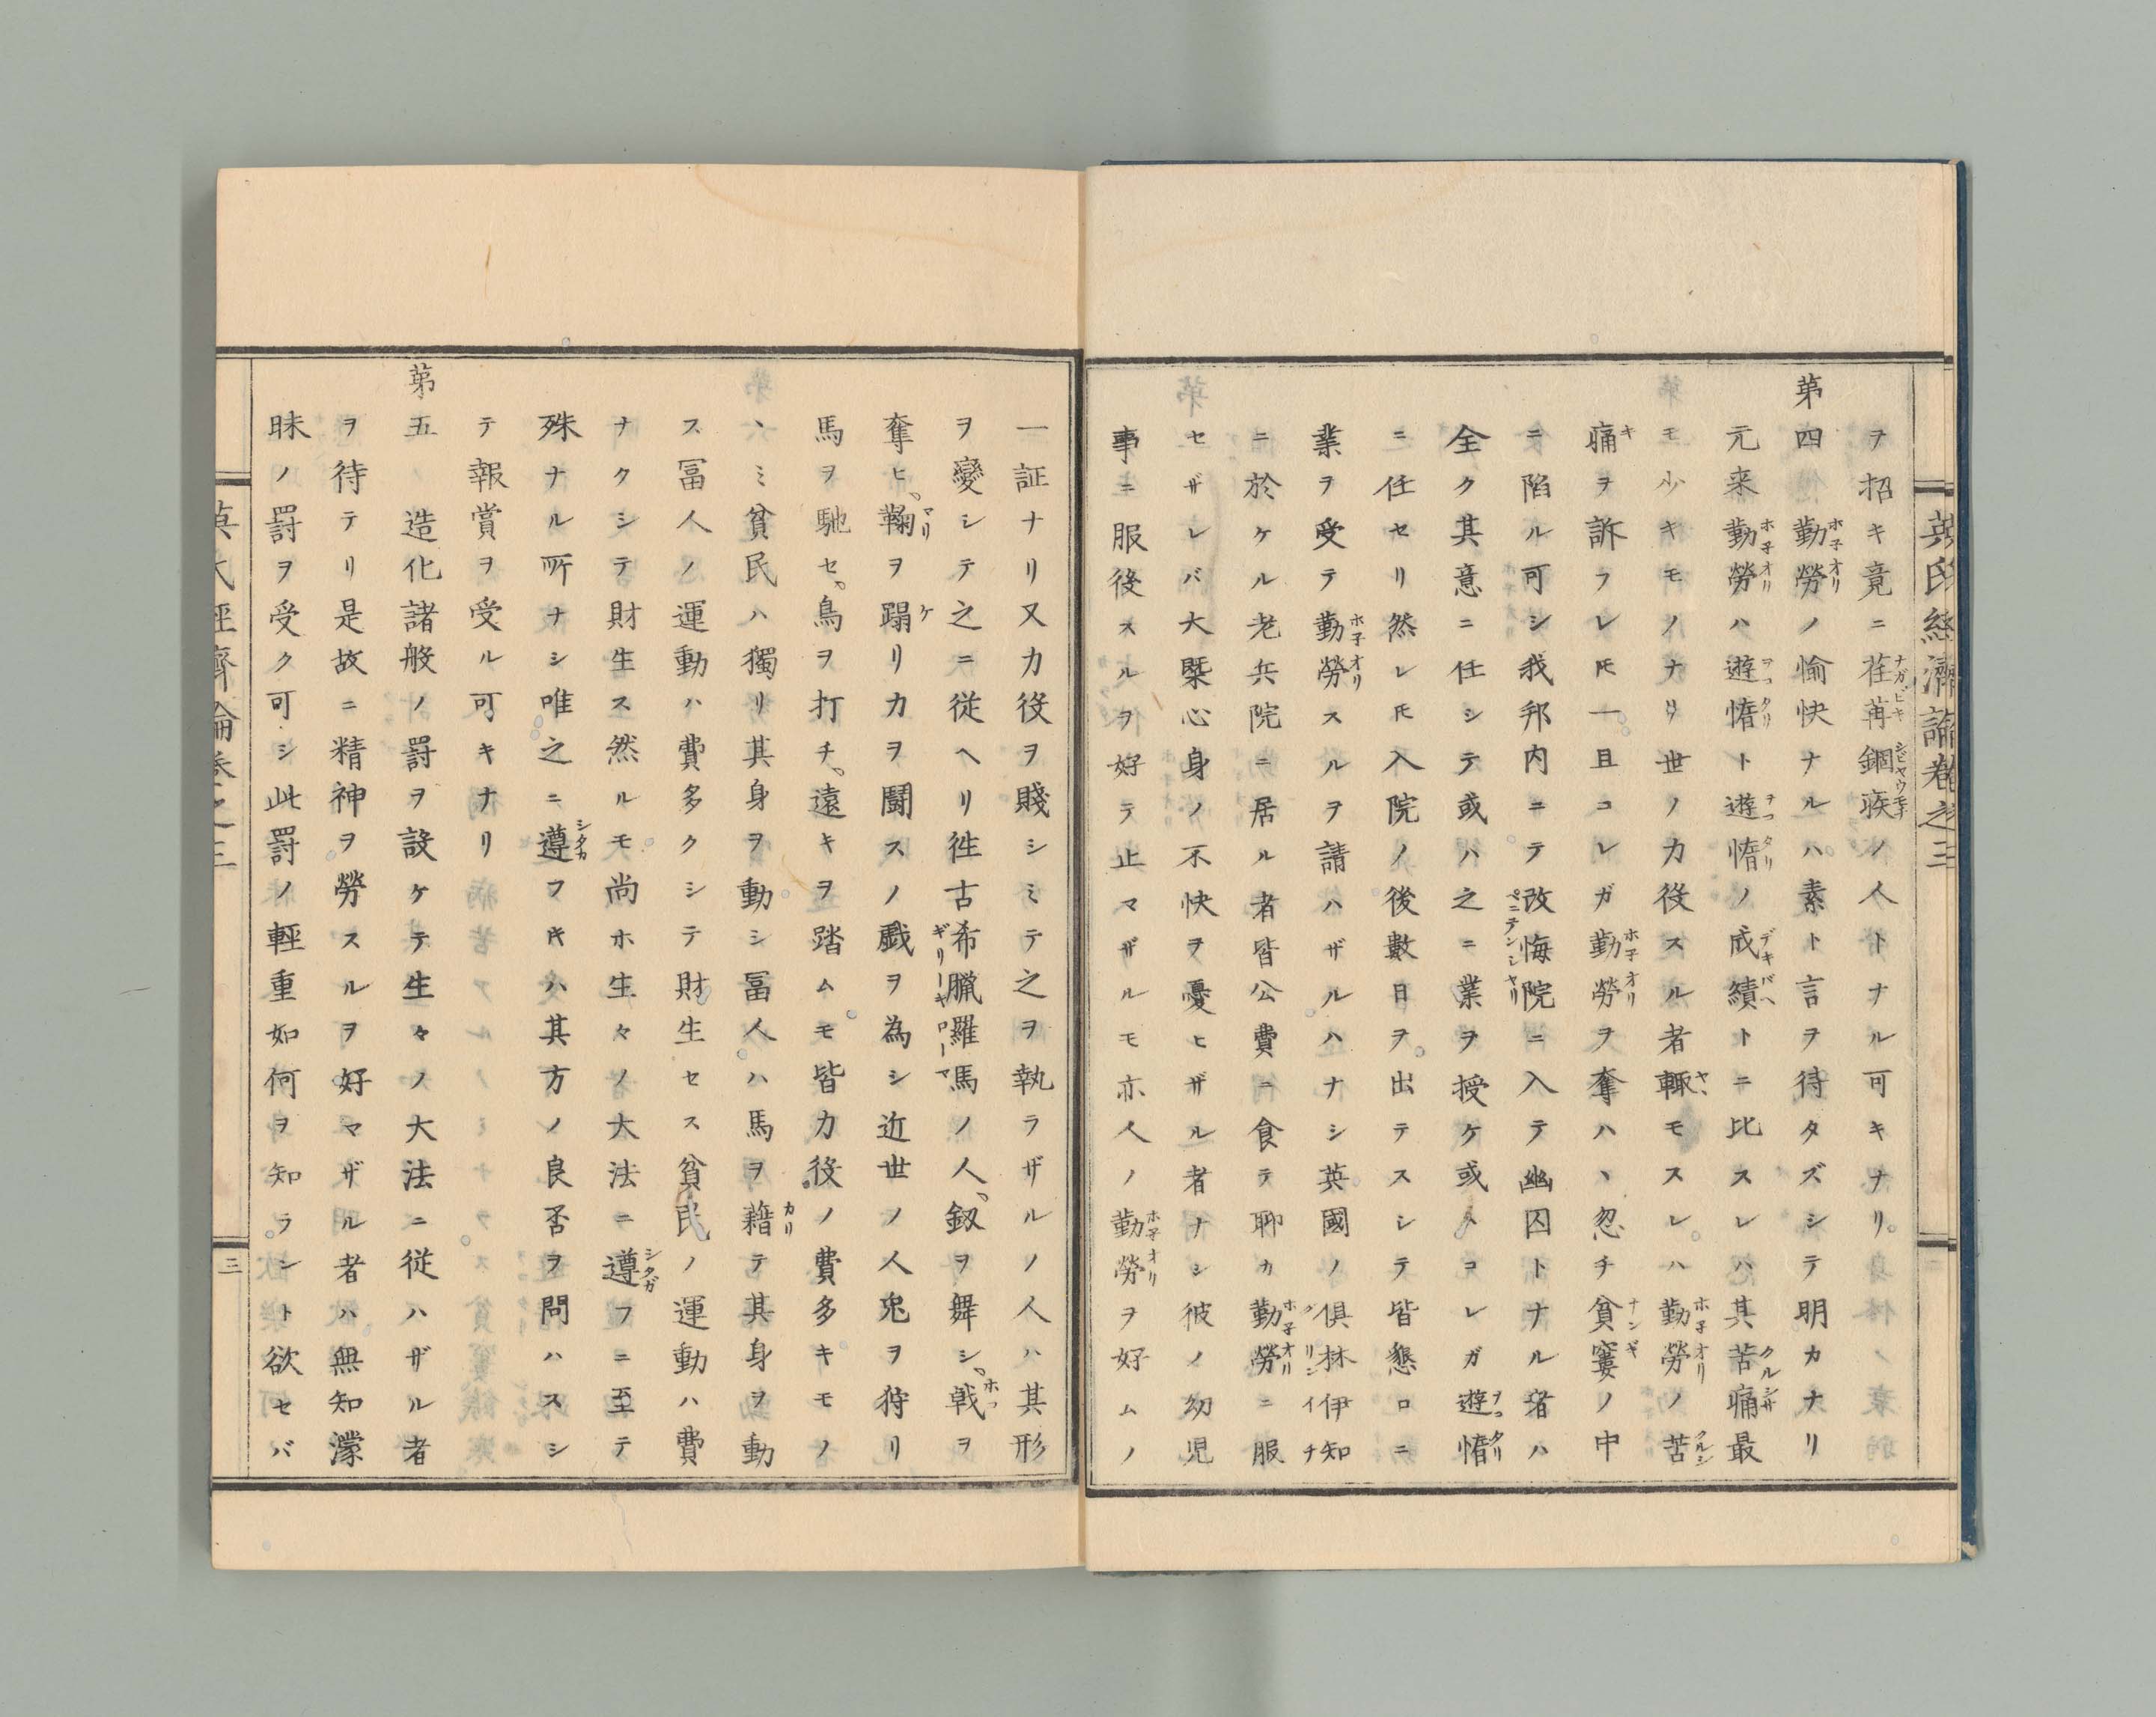 英氏經濟論卷之三
ヲ招キ竟ニ荏苒錮疾ノ人トナル可キナリ
第四勤勞ノ愉快ナルハ素ト言ヲ待タズシテ明カナリ
元来勤勞ハ遊惰ト遊惰ノ成績トニ比スレハ其苦痛最
モ少キモノナリ世ノ力役スル者輙モスレハ勤勞ノ苦
痛ヲ訴フレ𪜈一旦コレガ勤勞ヲ奪ハヽ忽チ貧窶ノ中
ニ陷ル可シ我邦内ニテ改悔院ニ入テ幽囚トナル者ハ
全ク其意ニ任シテ或ハ之ニ業ヲ授ケ或ハコレガ遊惰
ニ任セリ然レ𪜈入院ノ後數日ヲ出テスシテ皆懇ロニ
業ヲ受テ勤勞スルヲ請ハザルハナシ英國ノ倶林伊知
ニ於ケル老兵院ニ居ル者皆公費ニ食テ聊カ勤勞ニ服
セザレバ大槩心身ノ不快ヲ憂ヒザル者ナシ彼ノ幼児
事ニ服役スルヲ好テ止マザルモ亦人ノ勤勞ヲ好ムノ
一証ナリ又力役ヲ賤シミテ之ヲ執ラザルノ人ハ其形
ヲ變シテ之ニ従ヘリ徃古希臘羅馬ノ人、劔ヲ舞シ、戟ヲ
奪ヒ、鞠ヲ蹋リカヲ鬪スノ戯ヲ為シ近世ノ人兎ヲ狩リ
馬ヲ馳セ、鳥ヲ打チ、遠キヲ踏ムモ皆力役ノ費多キモノ
ヽミ貧民ハ獨リ其身ヲ動シ冨人ハ馬ヲ藉テ其身ヲ動
ス冨人ノ運動ハ費多クシテ財生セス貧民ノ運動ハ費
ナクシテ財生ス然ルモ尚ホ生々ノ大法ニ遵フニ至テ
殊ナル所ナシ唯之ニ遵フ𪜈ハ其方ノ良否ヲ問ハスシ
テ報賞ヲ受ル可キナリ
第五 造化諸般ノ罰ヲ設ケテ生々ノ大法ニ従ハザル者
ヲ待テリ是故ニ精神ヲ勞スルヲ好マザル者ハ無知濛
昧ノ罰ヲ受ク可シ此罰ノ輕重如何ヲ知ラント欲セバ
英氏經齊論卷之三
三